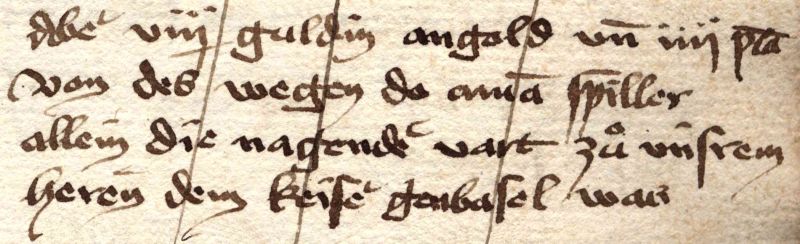 aber viij guldin an gold vn̄ iiij pla
von des wegen do amā spiller
allein die nagende vart zů vnsrem
heren dem keiser gen basel was